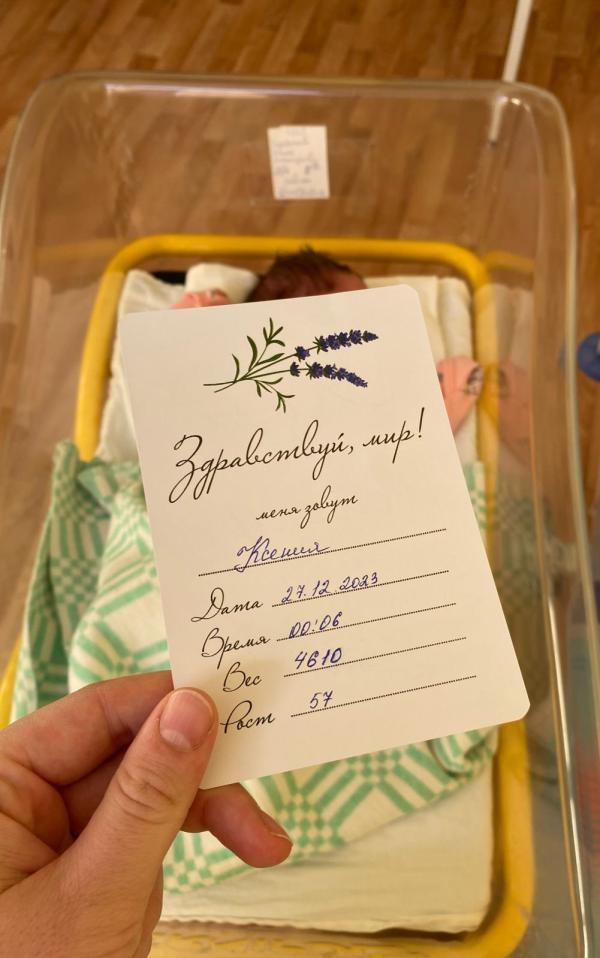 Здравствуй, мир!
меня зовут
Ксения
Дата 27.12.2023
Время 00:06
Вес 4610
Рост 57